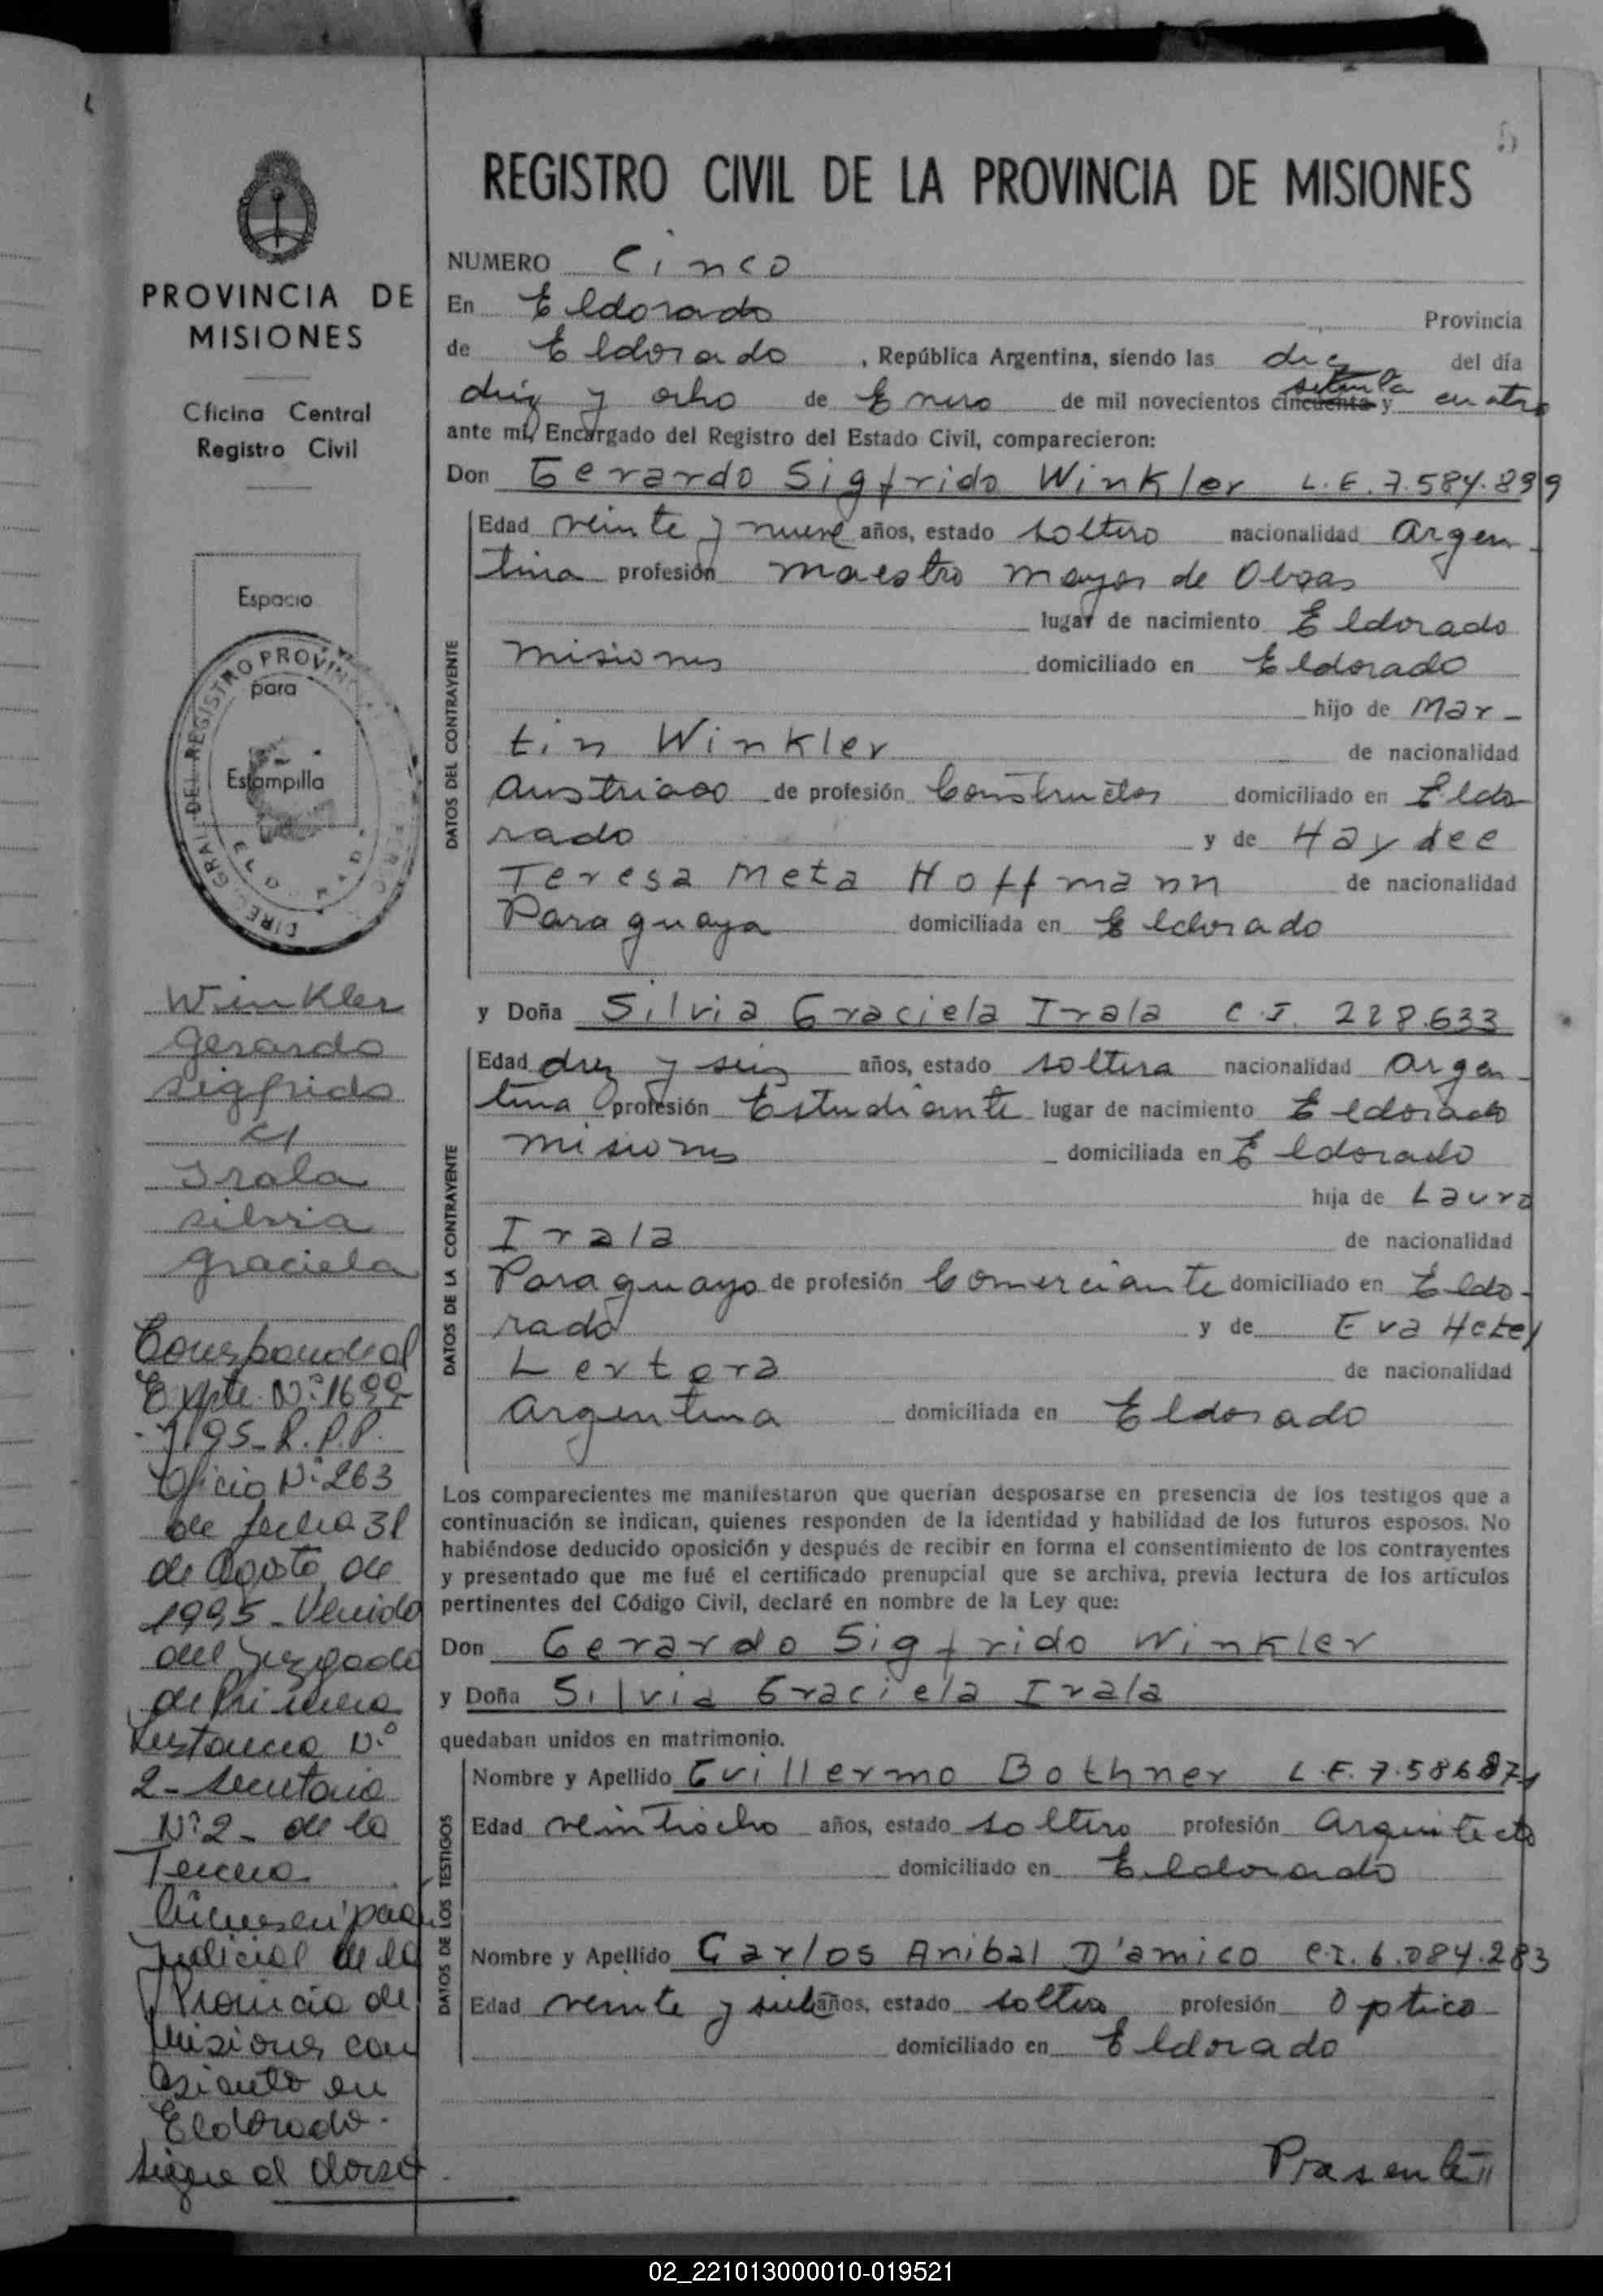 5
REGISTRO CIVIL DE LA PROVINCIA DE MISIONES
PROVINCIA DE
MISIONES
Oficina Central
Registro Civil
Espacio
para
Estampilla
Winkler
Gerardo
Sigfrido
c/
Irala
silvia
graciela
Corresponde al
Expte. Nº 1699-
-7/95-R.P.P.
Oficio Nº 263
de fecha 31
de Agosto de
1995_Venido
del Juzgado
de Primera
Instancia Nº
2- Secretaria
Nº 2_ de la
Tercera
Circunscripción
Judicial de la
Provincia de
Misiones con
Asiento en
Eldorado.
Sigue al dorso
NUMERO Cinco
En Eldorado Provincia
de Eldorado , República Argentina, siendo las diez del día
diez y ocho de Enero de mil novecientos cincuenta setenta y cuatro
ante mí, Encargado del Registro del Estado Civil, comparecieron:
Don Gerardo Sigfrido Winkler L.E. 7.584.899
DATOS DEL CONTRAYENTE
Edad veinte y nueve años, estado soltero nacionalidad Argen-
tina profesión maestro mayor de Obras
lugar de nacimiento Eldorado
misiones domiciliado en Eldorado
hijo de Mar-
tin Winkler de nacionalidad
Austriaco de profesión Constructor domiciliado en Eldo
rado y de Haydee
Teresa Meta Hoffmann de nacionalidad
Paraguaya domiciliada en Eldorado
y Doña Silvia Graciela Irala C.I. 228.633
DATOS DE LA CONTRAYENTE
Edad diez y seis años, estado soltera nacionalidad Argen-
tina profesión Estudiante lugar de nacimiento Eldorado
misiones domiciliada en Eldorado
hija de Lauro
Irala de nacionalidad
Paraguayo de profesión Comerciante domiciliado en Eldo-
rado y de Eva Hetel
Lertora de nacionalidad
Argentina domiciliada en Eldorado
Los comparecientes me manifestaron que querían desposarse en presencia de los testigos que a
continuación se indican, quienes responden de la identidad y habilidad de los futuros esposos. No
habiéndose deducido oposición y después de recibir en forma el consentimiento de los contrayentes
y presentado que me fué el certificado prenupcial que se archiva, previa lectura de los artículos
pertinentes del Código Civil, declaré en nombre de la Ley que:
Don Gerardo Sigfrido Winkler
y Doña Silvia Graciela Irala
quedaban unidos en matrimonio.
DATOS DE LOS TESTIGOS
Nombre y Apellido Guillermo Bothner L.E. 7.586871
Edad veintiocho años, estado soltero profesión Arquitecto
domiciliado en Eldorado
Nombre y Apellido Carlos Anibal D'amico C.I. 6.084.283
Edad veinte y siete años, estado soltero profesión Optico
domiciliado en Eldorado
Presente//
02_221013000010-019521